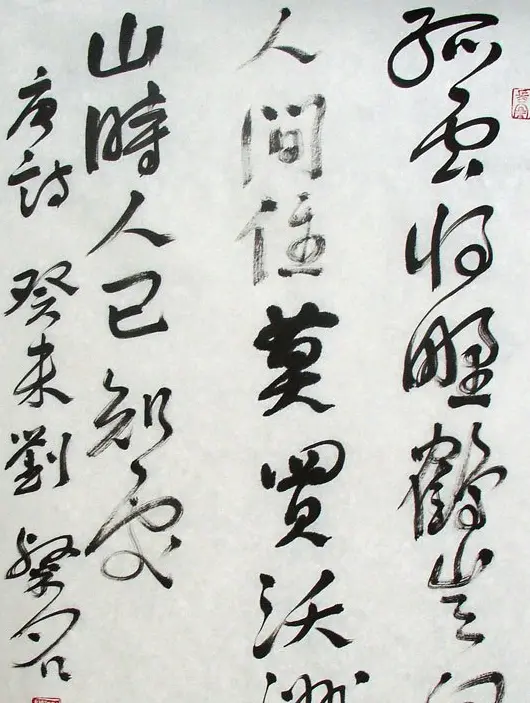 孤雲将野鶴豈向
人間住莫買沃洲
山時人已知處
唐詩 癸未劉粲名